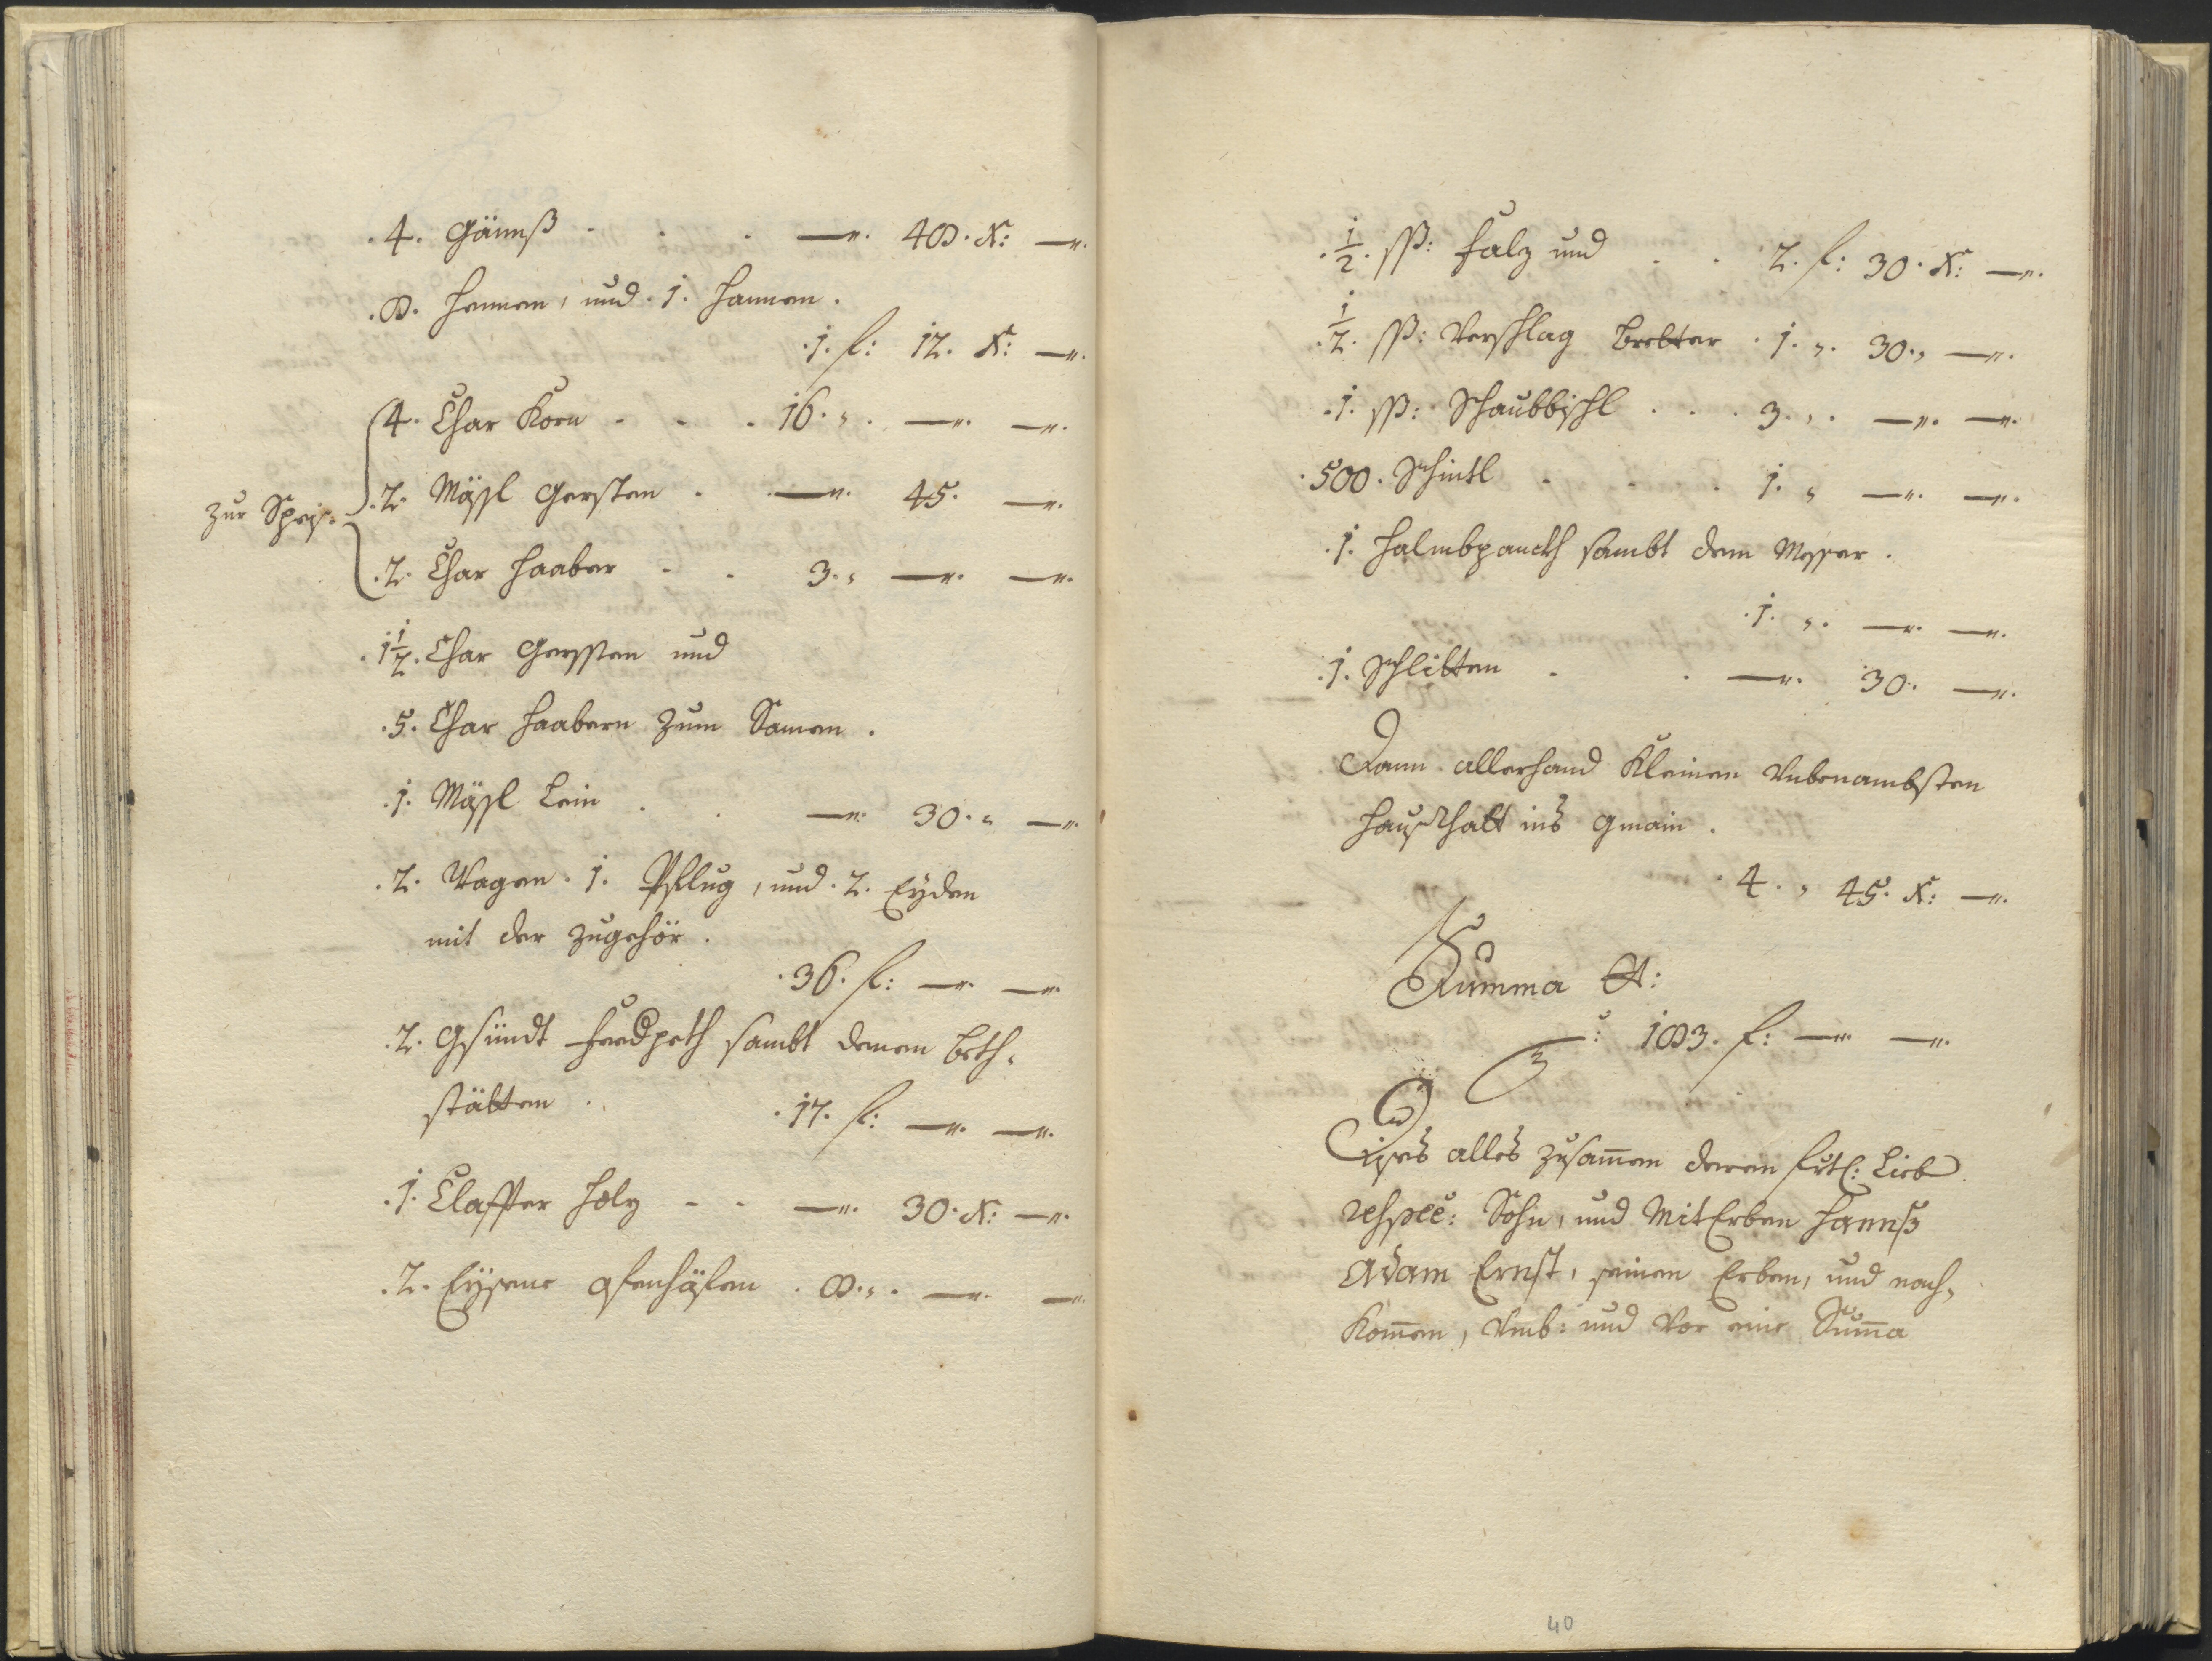 .4. Gännß . . . —".  48. X: —".
.8. Hennen, und .1. Hannen.
.1. f: 12. X: —".
4. Char Korn . . . 16. ". —". —".
Zur Speiß.
.2. Mässl Gersten . . —". 45. —".
.2. Char Haaber . . 3. " —". —".
.1 1/2. Char Gerssten und
.5. Char Haabern zum Samen.
.1. Mässl Lein . . —". 30. " —".
.2. Wagen .1. Pflug, und .2. Eyden
mit der Zugehör.
.36. f: —". —".
.2. Gsündt Feedpeth sambt denen Beth-
stätten .
.17. f: —". —".
.1. Claffter Holz - - —". 30. X: —".
.2. Eyserne Ofenhäfen . 8. ". —". —".
.1/2. ßß: Falz und . . 2. f: 30. X: —".
.1/2. ßß: Verschlag Bretter . 1. ". 30. " —".
.1. ßß: Schaubbischl . . . 3. ". —". —".
.500. Schintl . . . 1. " —". —".
.1. Halmbpanckh sambt dem Messer.
.1. ". —". —".
.1. Schlitten . . —". 30. —".
Dann allerhand Kleinen Unbenambsten
Haußhalt ins Gmain.
.4. " 45. X: —".
Summa
183. f: —". —".
Dises alles zusammen deren Lieb
Sohn, und MitErben Hannß
Adam Ernst, seinen Erben, und nach-
Kommen, Umb: und Vor eine Summa
40